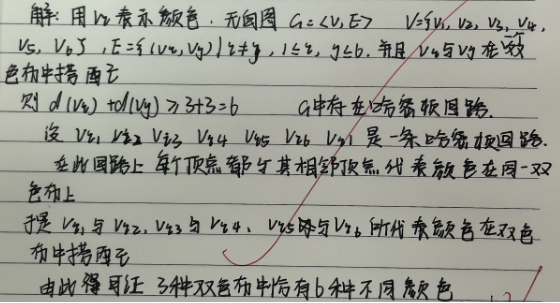 解:用Vi表示颜色.无向图G=<V,E> V={V1,V2,V3,V4,
V5,V6},E={(Vx,Vy)|x≠y,1≤x,y≤6,并且Vx与Vy在一双
色布中搭配}
则d(Vx)+d(Vy)≥3+3=6 G中存在哈密顿回路.
设Vi1 Vi2 Vi3 Vi4 Vi5 Vi6 Vi1是一条哈密顿回路.
在此回路上每个顶点都与其相邻顶点代表颜色在同一双
色布上
于是Vi1与Vi2,Vi3与Vi4,Vi5与Vi6所代表颜色在双色
布中搭配
由此得可证3种双色布中含有6种不同颜色